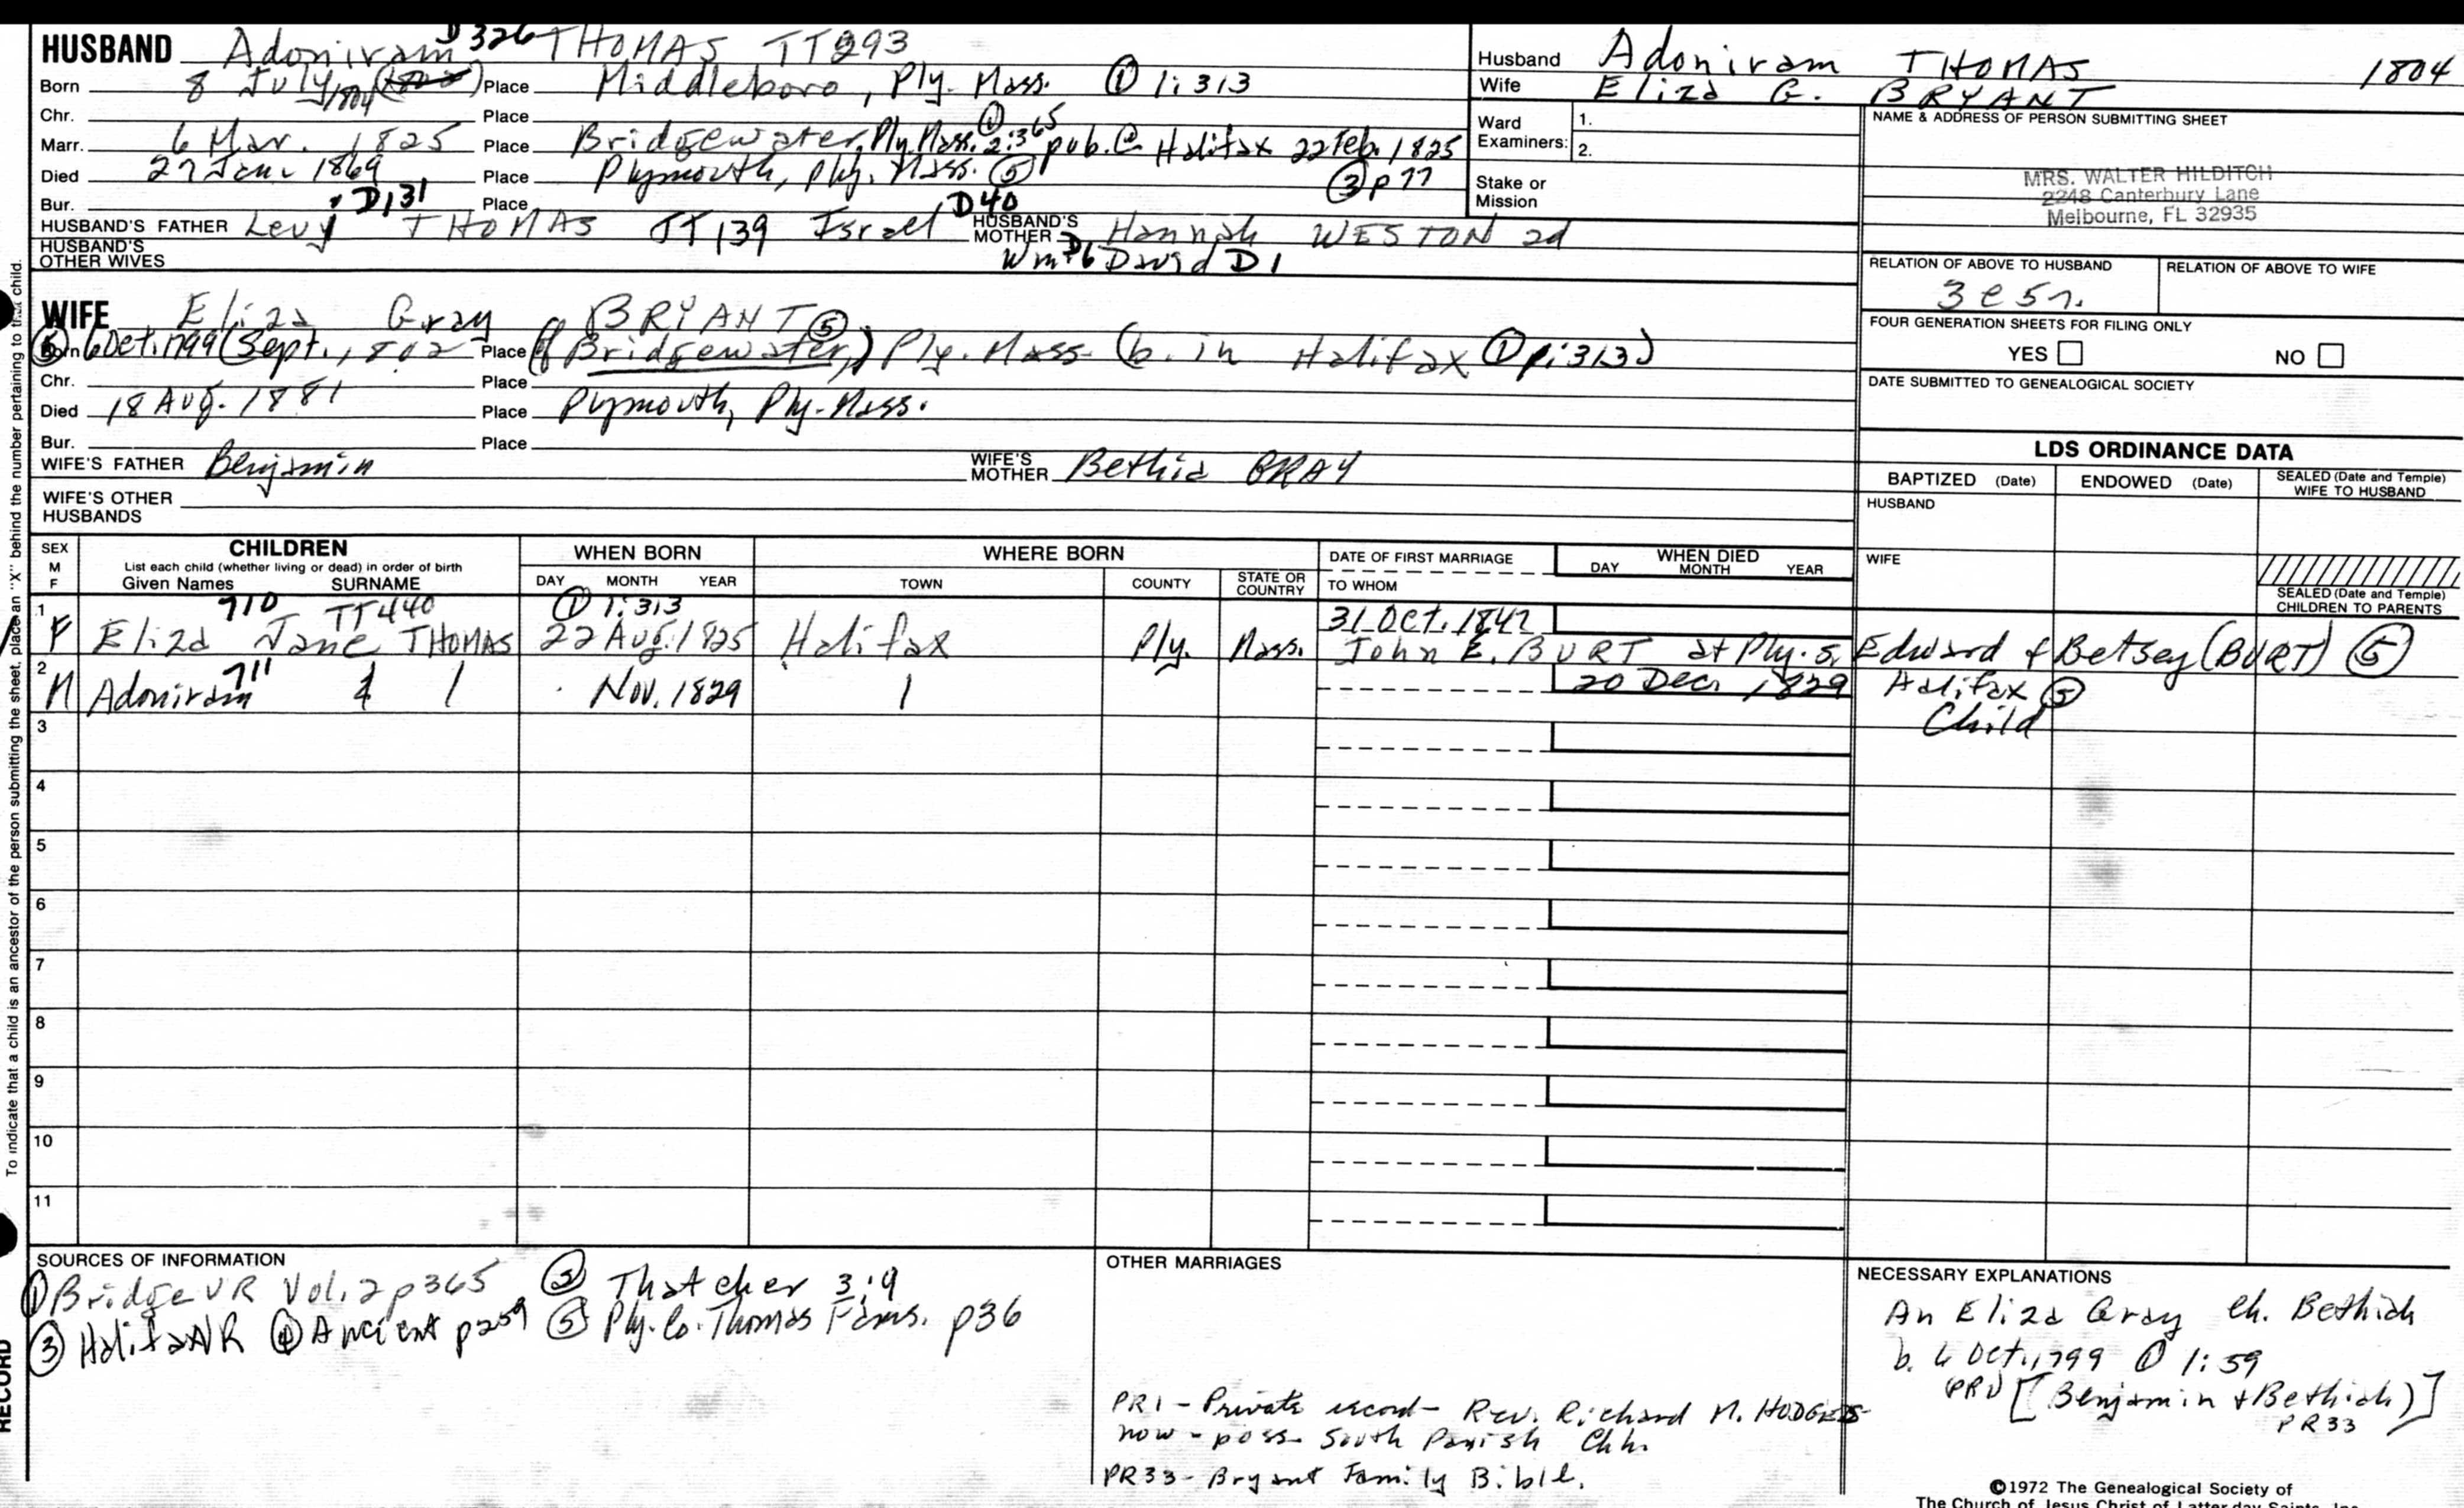 HUSBAND Adoniram D326 THOMAS TT293
Born 8 July 1804 Place Middleboro, Ply. Mass. ① 1:313
Chr. Place
Marr. 6 Mar. 1825 Place Bridgewater, Ply. Mass. ① 2:365 pub. @ Halifax 22 Feb. 1825
Died 27 Jan. 1869 Place Plymouth, Ply. Mass. ⑤ ③ p77
Bur. Place
HUSBAND'S FATHER Levy D131 THOMAS TT139 Israel D40 HUSBAND'S MOTHER Hannah WESTON 2d
HUSBAND'S OTHER WIVES Wm D6 David D1
Husband Adoniram THOMAS 1804
Wife Eliza G. BRYANT
Ward Examiners: 1.
2.
Stake or Mission
NAME & ADDRESS OF PERSON SUBMITTING SHEET
MRS. WALTER HILDITCH
2248 Canterbury Lane
Melbourne, FL 32935
RELATION OF ABOVE TO HUSBAND RELATION OF ABOVE TO WIFE
FOUR GENERATION SHEETS FOR FILING ONLY
YES NO
DATE SUBMITTED TO GENEALOGICAL SOCIETY
WIFE Eliza Gray BRYANT ⑤
⑤ Born 6 Oct. 1799 (Sept. 1802 Place (of Bridgewater,) Ply. Mass. (b. in Halifax ① p1:313)
Chr. Place
Died 18 Aug. 1881 Place Plymouth, Ply. Mass.
Bur. Place
WIFE'S FATHER Benjamin WIFE'S MOTHER Bethia GRAY
WIFE'S OTHER HUSBANDS
LDS ORDINANCE DATA
BAPTIZED (Date) ENDOWED (Date) SEALED (Date and Temple) WIFE TO HUSBAND
HUSBAND
WIFE
SEALED (Date and Temple) CHILDREN TO PARENTS
SEX M F CHILDREN List each child (whether living or dead) in order of birth Given Names SURNAME
WHEN BORN DAY MONTH YEAR
WHERE BORN TOWN COUNTY STATE OR COUNTRY
DATE OF FIRST MARRIAGE TO WHOM
WHEN DIED DAY MONTH YEAR
710 TT440 ① 1:313 31 Oct. 1847
1 F Eliza Jane THOMAS 22 Aug. 1825 Halifax Ply. Mass. John E. BURT at Ply. s, Edward & Betsey (BURT) ⑤
711
2 M Adoniram Nov. 1829 20 Dec. 1829 Halifax ③
Child
3
4
5
6
7
8
9
10
11
SOURCES OF INFORMATION
① Bridge VR Vol. 2 p365 ② Thatcher 3:9
③ Halifax VR ④ Ancient p259 ⑤ Ply. Co. Thomas Fams. p36
OTHER MARRIAGES
PR1 - Private record - Rev. Richard M. HODGES
now - poss. South Parish Chh.
PR33 - Bryant Family Bible.
NECESSARY EXPLANATIONS
An Eliza Gray ch. Bethiah
b. 6 Oct. 1799 ① 1:59
PR1 [Benjamin & Bethiah)]
PR33
©1972 The Genealogical Society of
The Church of Jesus Christ of Latter-day Saints, Inc.
To indicate that a child is an ancestor of the person submitting the sheet, place an "X" behind the number pertaining to that child.
RECORD